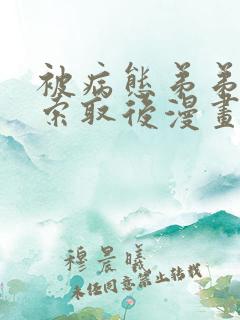 被病態弟弟
索取後漫畫
穆晨曦
未经同意禁止转载